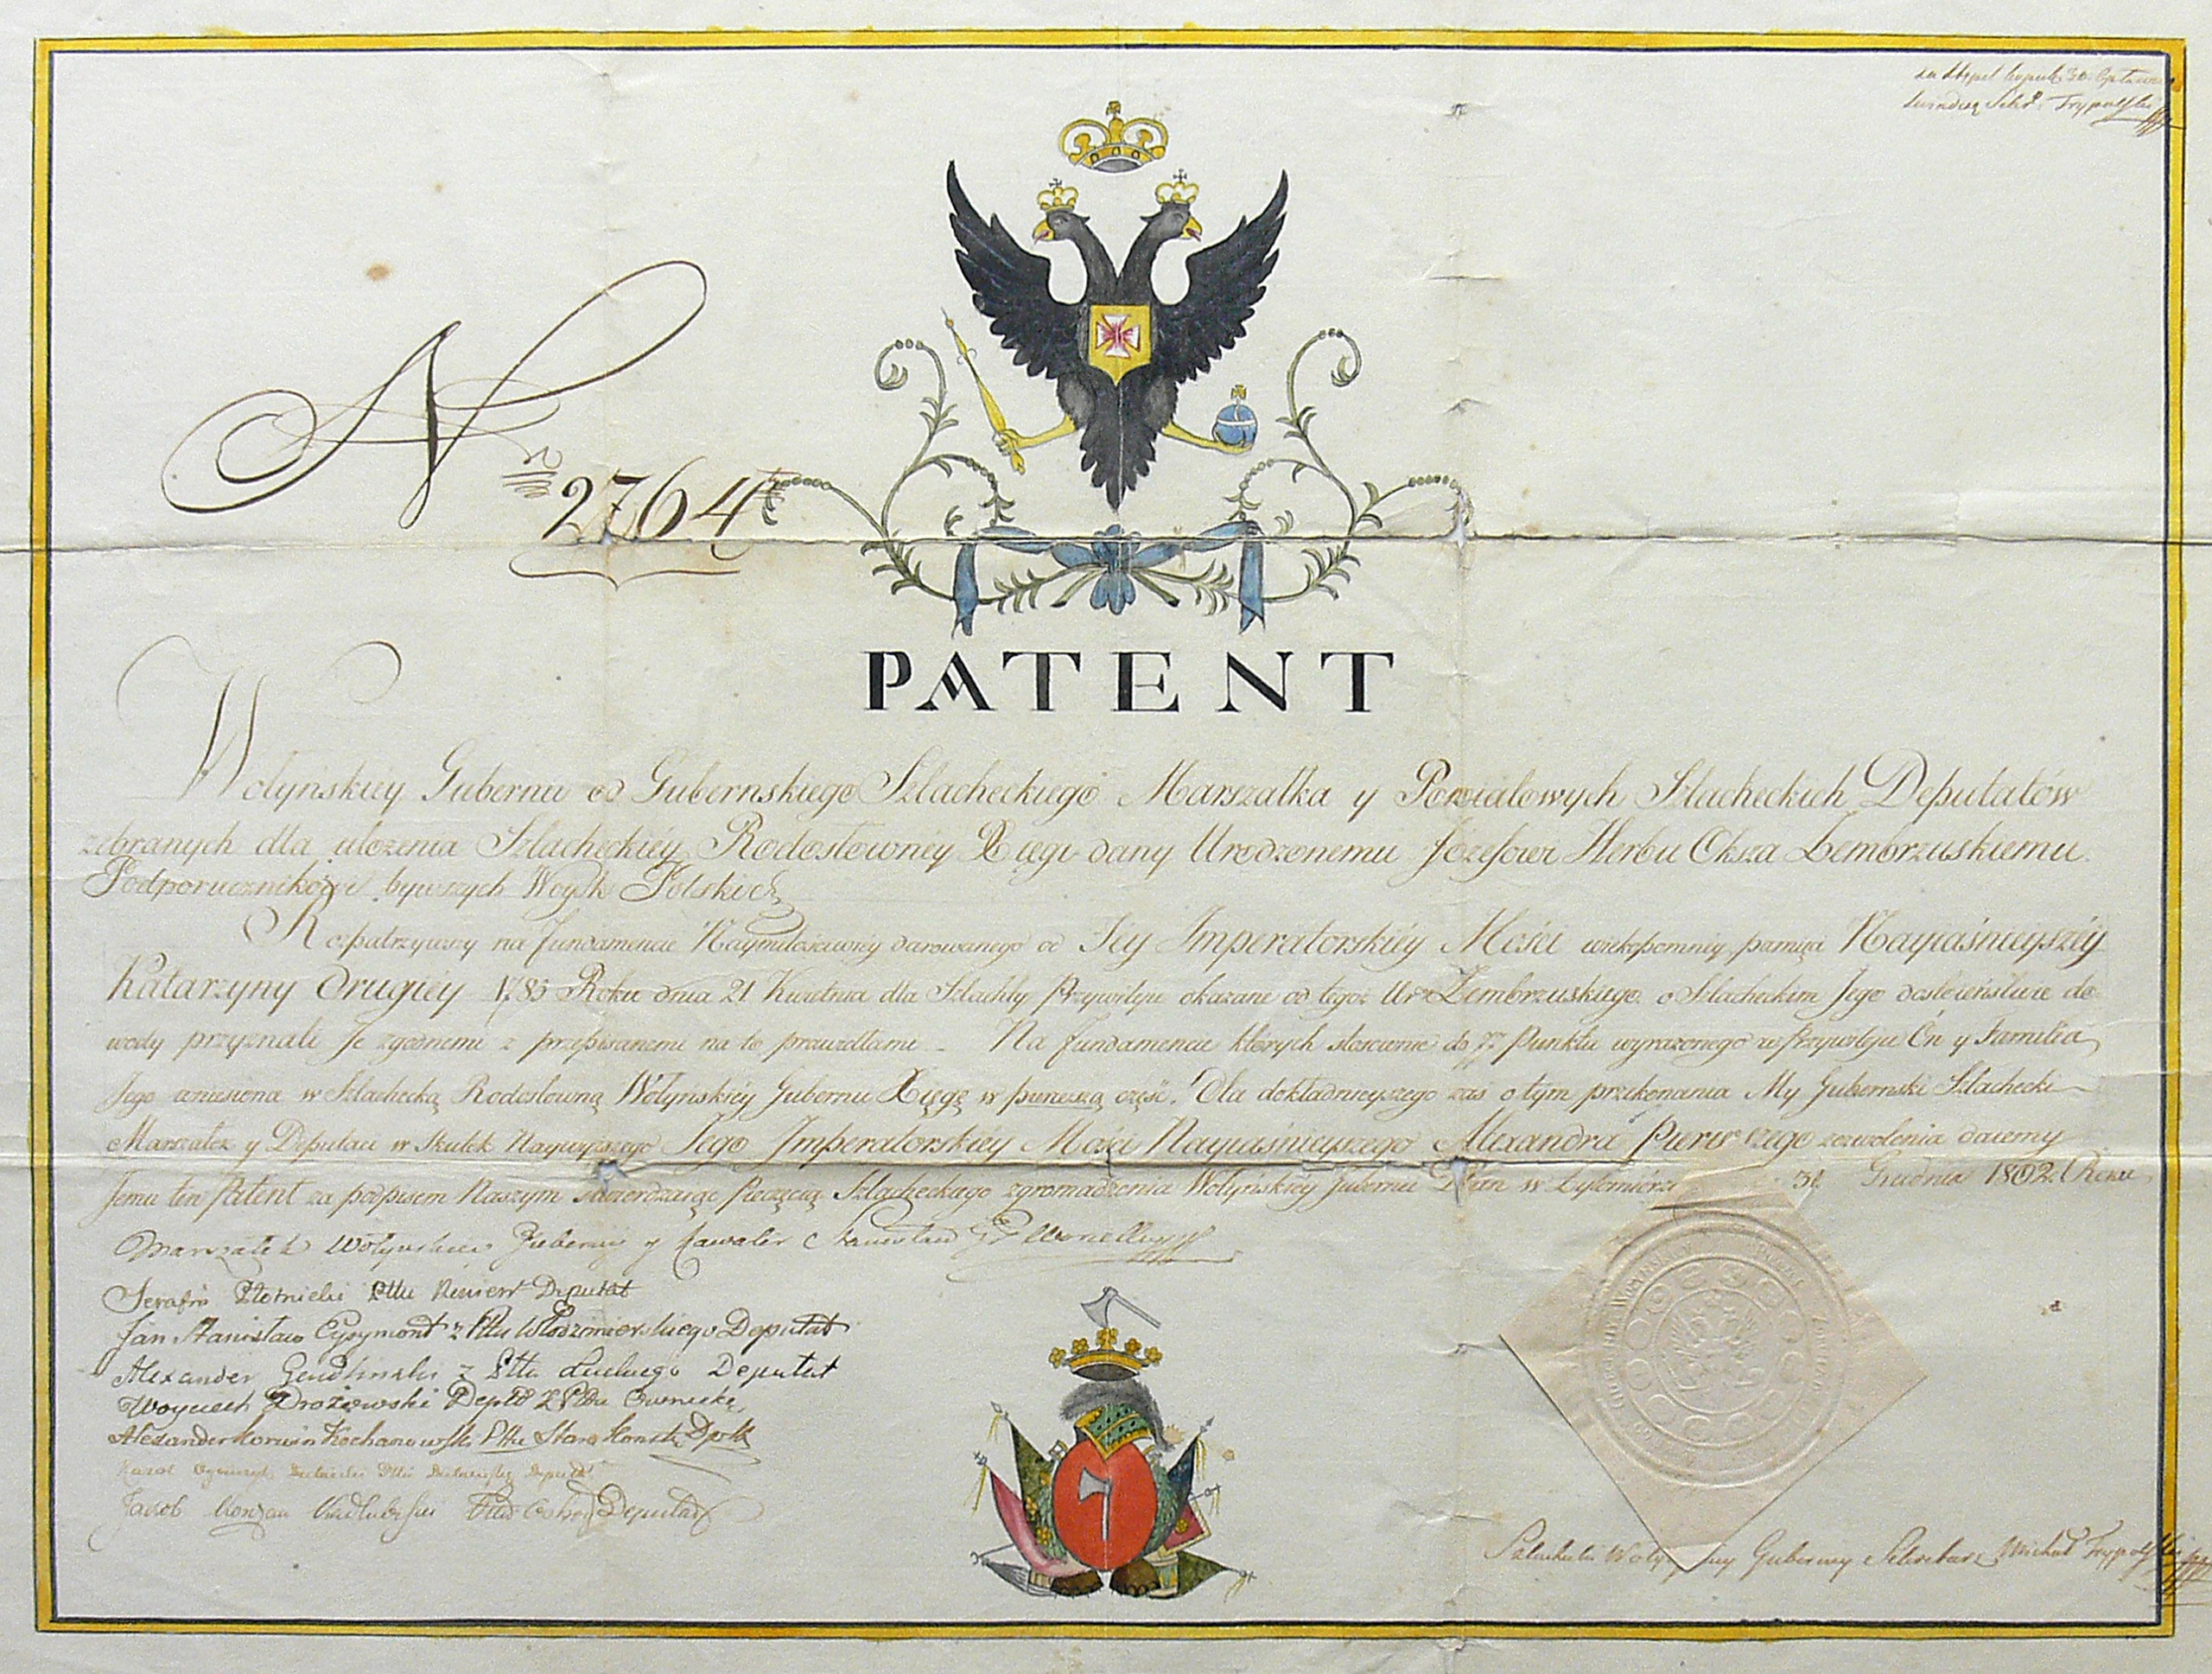 za stępel kopiek 30. Opłacono
Swiadczę Sekr: Trypolski
N
ro 2764
PATENT
Wołyńskiéy Gubernii od Gubernskiego Szlacheckiego Marszałka y Powiatowych Szlacheckich Deputatów
zebranych dla ułożenia Szlacheckiéy Rodosłownéy Xięgi dany Urodzonemu Józefowi Herbu Oksza Zembrzuskiemu
Podporucznikowi bywszych Woysk Polskich
Rozpatrzywszy na fundamencie Naymiłościwiéy darowanego od Jey Imperatorskiéy Mości wiekopomnéy pamięci Nayiaśnieyszéy
Katarzyny Drugiéy 1785 Roku dnia 21 Kwietnia dla Szlachty Przywileju okazane od tegoż Ur: Zembrzuskiego o Szlacheckim Jego dostoieństwie do-
wody przyznali Je zgodnemi z przepisanemi na to prawidłami - Na fundamencie których stosownie do 77 Punktu wyrażonego w Przywileju On y Familia
Jego wniesiona w Szlachecką Rodosłowną Wołyńskiéy Gubernii Xięgę w pierwszą część. Dla dokładnieyszego zaś o tym przekonania My Gubernski Szlachecki
Marszałek y Deputaci w Skutek Naywyższego Jego Imperatorskiéy Mości Nayiaśnieyszego Alexandra Pierwszego zezwolenia daiemy
Jemu ten Patent za podpisem Naszym stwierdzaiąc Pieczęcią Szlacheckiego zgromadzenia Wołyńskiéy Gubernii Dan w Żytomierzu 31 Grudnia 1802. Roku
Marszałek Wołynskiey Gubernii y Kawaler Stanisław Worcell
Serafin Deputat
Jan Stanisław Eysymont z Pttu Włodzimierskiego Deputat
Alexander z Pttu Łuckiego Deputat
Woyciech Drożewski Deptt z Pttu
Alexander Korwin Kochanowski Pttu Staro Konst: Dptt
Karol Deputat
Jakob Deputat
Szlachecki Wołynskiey Guberniy Sekretarz Michał Trypolski